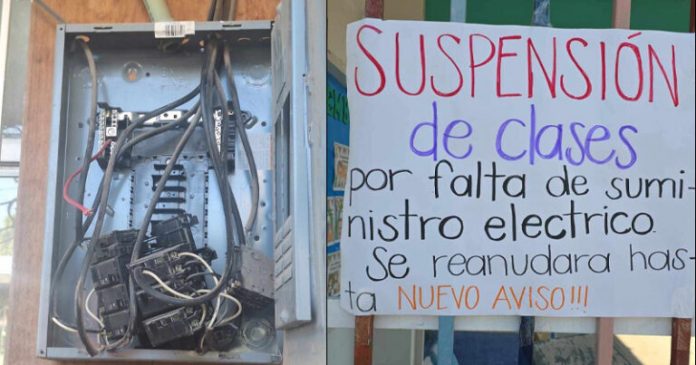 SUSPENSIÓN
de clases
por falta de sumi-
nistro electrico.
Se reanudara has-
ta NUEVO AVISO!!!